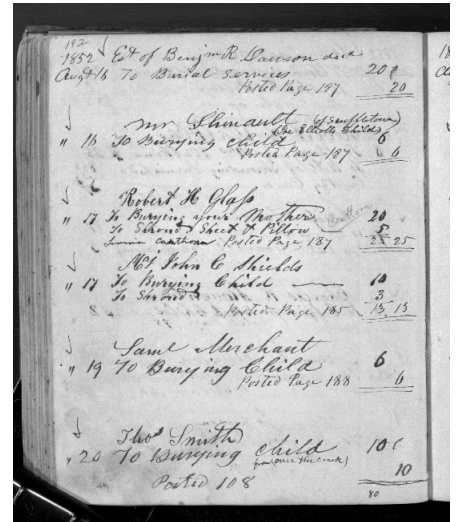 192
1852 Est of Benjm R Dawson decd
Augt 16 To Burial Services 20
Posted Page 187 20
Mr Shinault (of Scuffletown)
(Joe Elliotts Child)
" 16 To Burying child 6
Posted Page 187 6
Robert H Glass
" 17 To Burying your Mother 20
To Shroud Sheet & Pillow 5
Cauthorn Posted Page 187 25 25
Mr John C Shields
" 17 To Burying Child 10
To Shroud 3
Posted Page 185 13 13
Saml Merchant
" 19 To Burying Child 6
Posted Page 188 6
Thos Smith
" 20 To Burying child 10
(from over the creek) 10
Posted 108
80